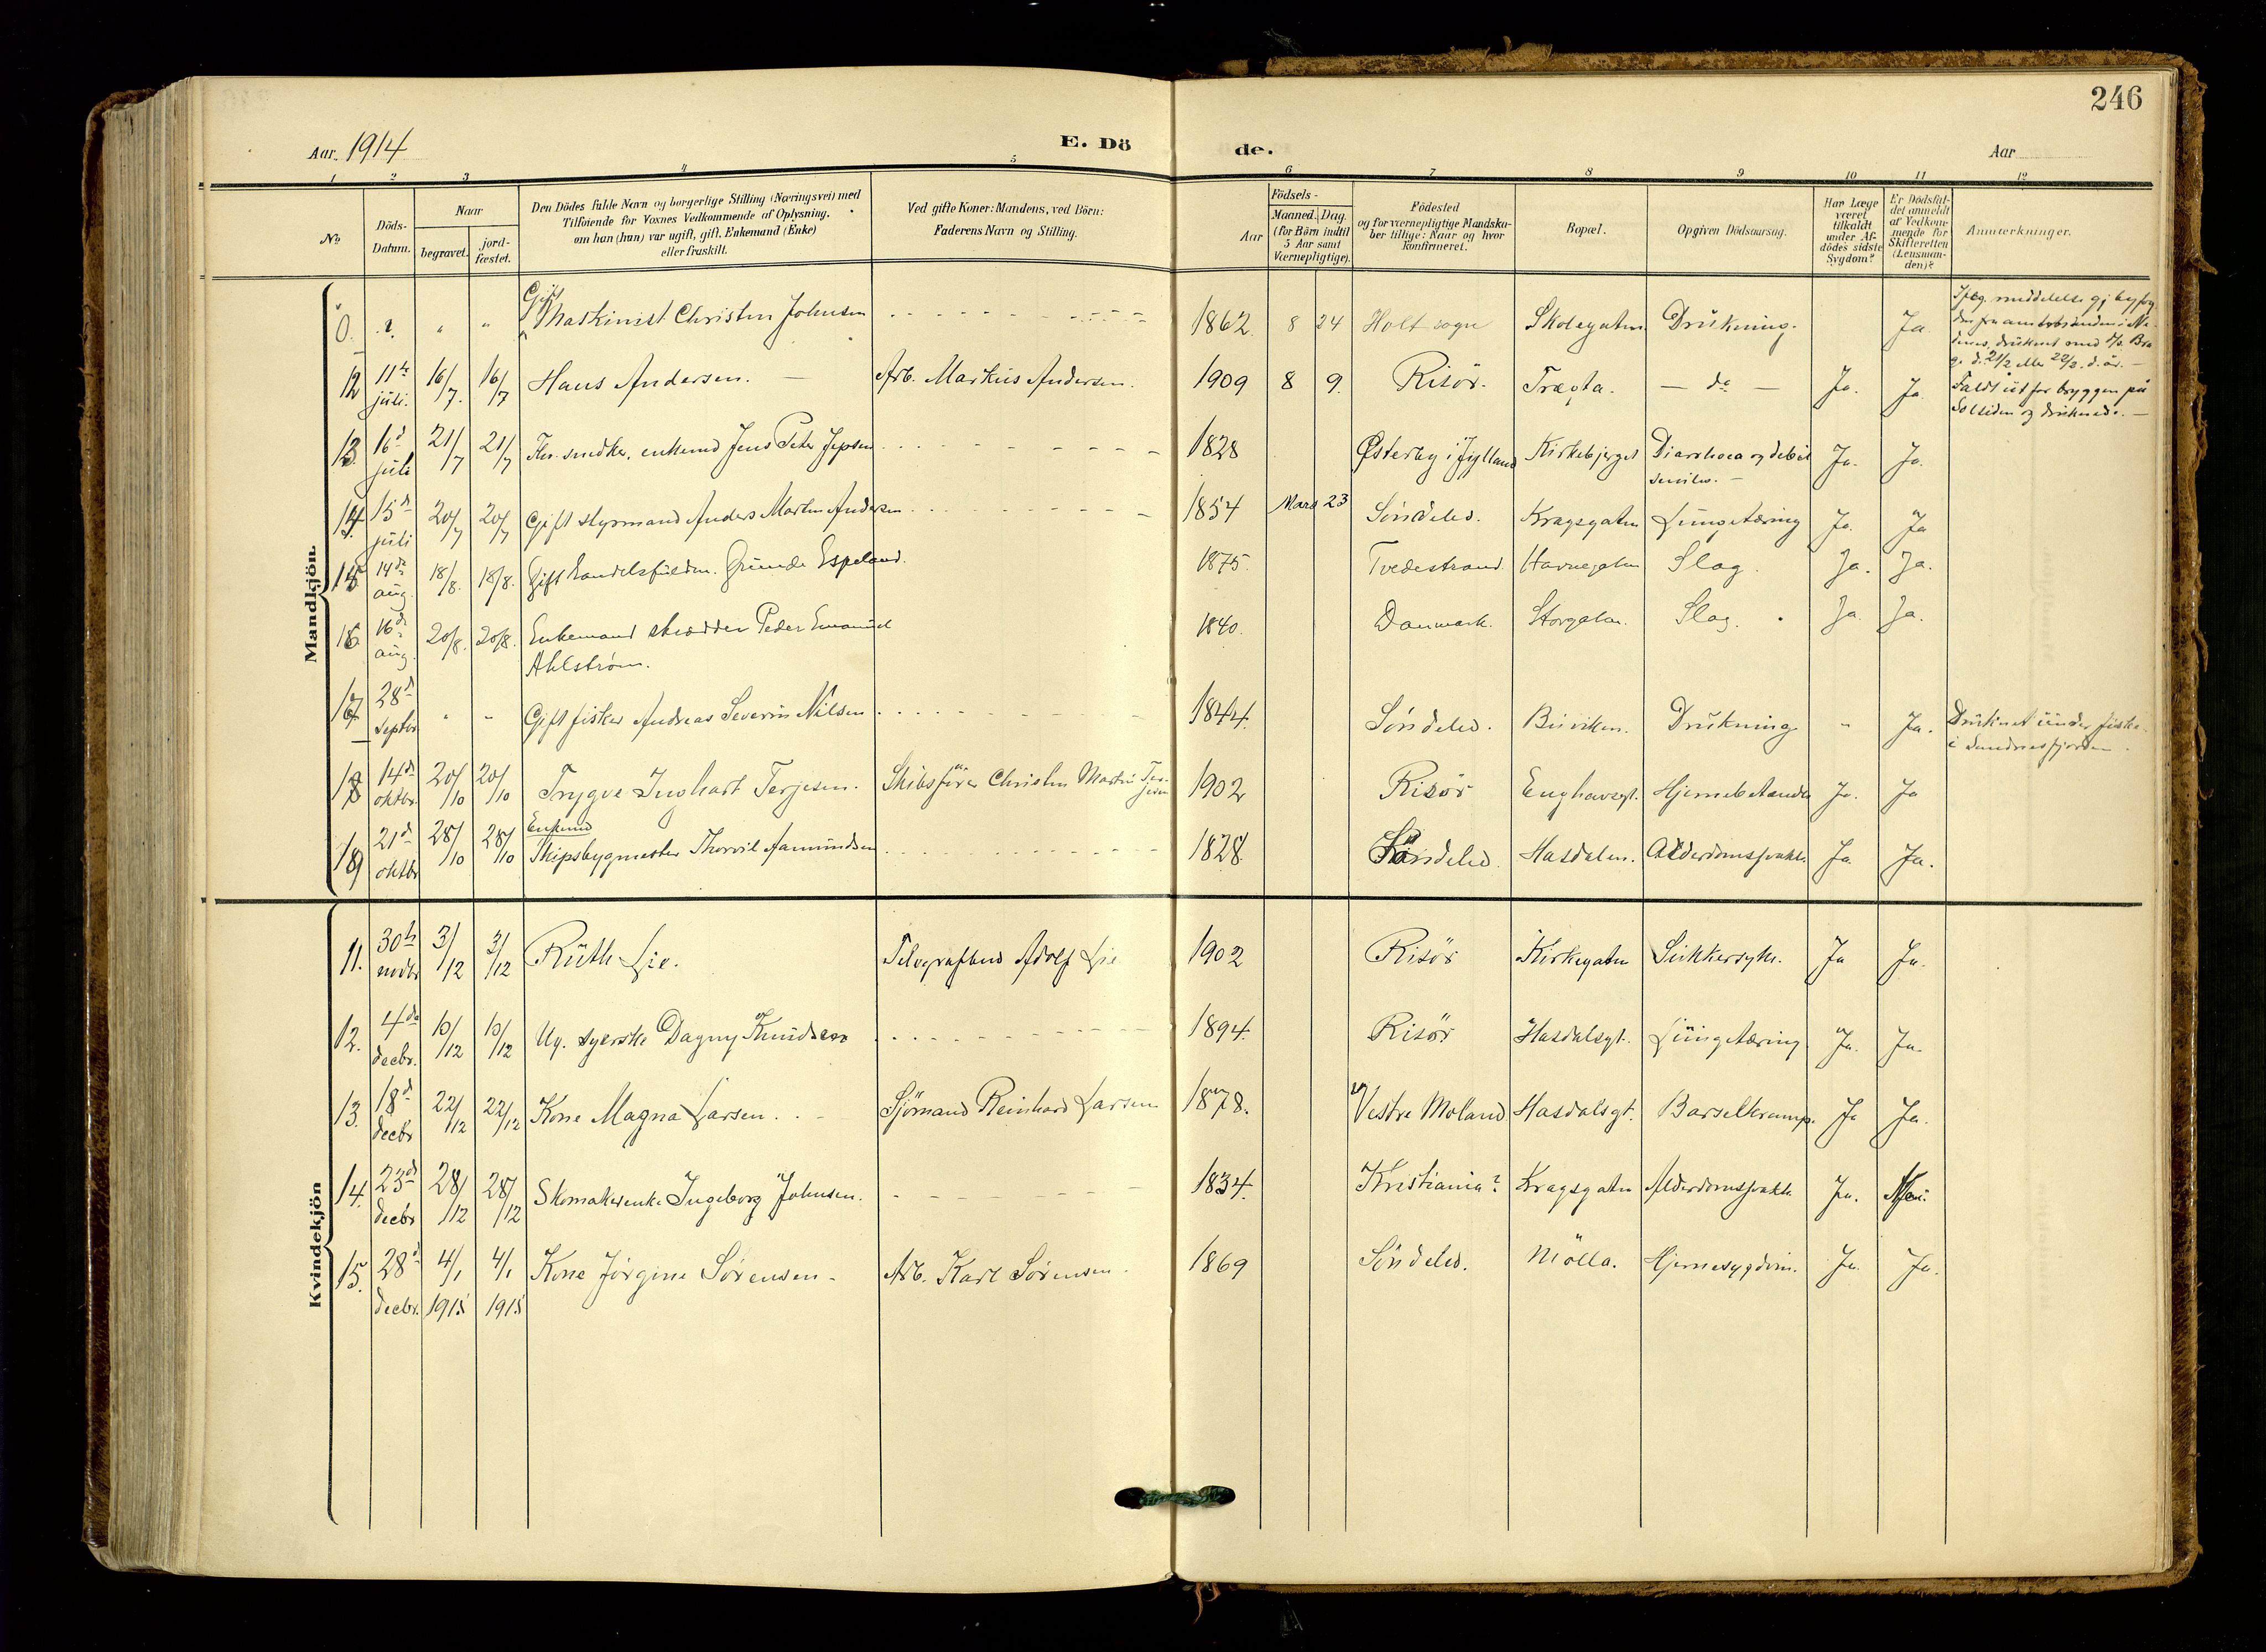 246
Aar 1914
E. Dö de.
Aar
1 2 3 4 5 6 7 8 9 10 11 12
No
Döds-Datum.
Naar
begravet.
jord-fæstet.
Den Dödes fulde Navn og borgerlige Stilling (Næringsvei) med
Tilföiende for Voxnes Vedkommende af Oplysning.
om han (hun) var ugift, gift, Enkemand (Enke)
eller fraskilt.
Ved gifte Koner: Mandens, ved Börn:
Faderens Navn og Stilling.
Aar
Födsels-
Maaned. Dag.
(for Börn indtil
5 Aar samt
Værnepligtige).
Födested
og for værnepligtige Mandska-
ber tillige: Naar og hvor
Konfirmeret.
Bopæl.
Opgiven Dödsaarsag.
Har Læge
været
tilkaldt
under Af-
dödes sidste
Sygdom?
Er Dödsfal-
det anmeldt
af Vedkom-
mende for
Skifteretten
(Lensman-
den)?
Anmærkninger.
Mandkjön.
0. ? " " Gift Maskinist Christen Johnsen 1862 8 24 Holt sogn Skolegaten Drukning. Ja.
12 11te juli. 16/7. 16/7 Hans Andersen. — Arb. Markus Andersen. 1909 8 9. Risör. Tragta. — do — Ja. Ja Faldt ut for bryggen på
Solsiden og druknede. —
13. 16d juli 21/7 21/7 enkemd Jens Peter Jepsen 1828 Østerby i Jylland Kirkebjerget Diarrhoea og debil
senilis. — Ja. Ja.
14. 15d juli 20/7 20/7 Gift styrmand Anders Martin Andersen 1854 Mars 23 Søndeled. Kragsgaten Lungetæring Ja. Ja
15 14de aug. 18/8. 18/8. Gift handelsfuldm. Grunde Espeland. 1875. Tvedestrand Havnegaten Slag. Ja. Ja.
16 16de aug. 20/8. 20/8. Enkemand skrædder Peder Emanuel
Ahlstrøm. 1840. Danmark. Storgaten. Slag. Ja. Ja.
17 28d septbr " " Gift fisker Andreas Severin Nilsen 1844. Søndeled. Buviken. Drukning " Ja. Druknet under fiske
i Sandnesfjorden.
18 14de oktbr. 20/10 20/10 Trygve Terjesen. Skibsfører Christen Martin Terjesen 1902 Risör Enghavegt. Hjernebetændelse Ja. Ja
19 21d oktbr 28/10 28/10 Enkemd
Skipsbygmester Thorvil Aamundsen 1828 Søndeled. Hasdalen. Alderdomssvakh. Ja Ja.
Kvindekjön
11. 30te novbr 3/12 3/12 Ruth Lie. Adolf Lie 1902 Risör Kirkegaten Sukkersyke. Ja Ja.
12. 4de decbr. 10/12 10/12 Ug. syerske Dagny Knudsen 1894. Risör Hasdalsgt. Lungetæring Ja. Ja.
13. 18d decbr 22/12 22/12 Kone Magna Larsen. Sjömand Reinhard Larsen 1878. Vestre Moland Hasdalsgt. Barselkrampe. Ja Ja.
14. 23d decbr 28/12 28/12 Skomakerenke Ingeborg Johnsen. 1834. Kristiania? Kragsgaten Alderdomssvakh. Ja. Nei.
15. 28d decbr. 4/1 1915 4/1 1915 Kone Jørgine Sørensen. Arb. Karl Sørensen. 1869 Søndeled. Mölla. Hjernesygdom. Ja Ja.